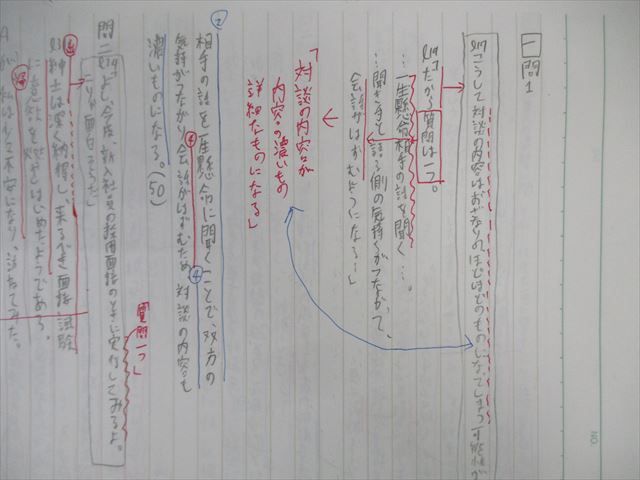 一 問1
l17 こうして対談の内容はおざなりのはじはじのものになってしまう可能性が
l19 だから質問は一つ。
…一生懸命相手の話を聞く…。
…聞き手と話す側の気持ちがつながって、
会話がはずむようになる…」
「対談の内容が
内容の濃いもの
詳細なものになる」
②
相手の話を一生懸命に聞くことで、双方の
気持ちがつながり会話がはずむため、対談の内容も
濃いものになる。(50)
④
④
質問一つ」
問二 l14 よし、今度、新入社員の採用面接のときに実行してみるよ。
こりゃ面白そうだ」
l31 紳士は深く納得し、来るべき面接試験
に意欲を燃やしはじめたようである。
が、私は少々不安になり、訊ねてみた。
A
NO.